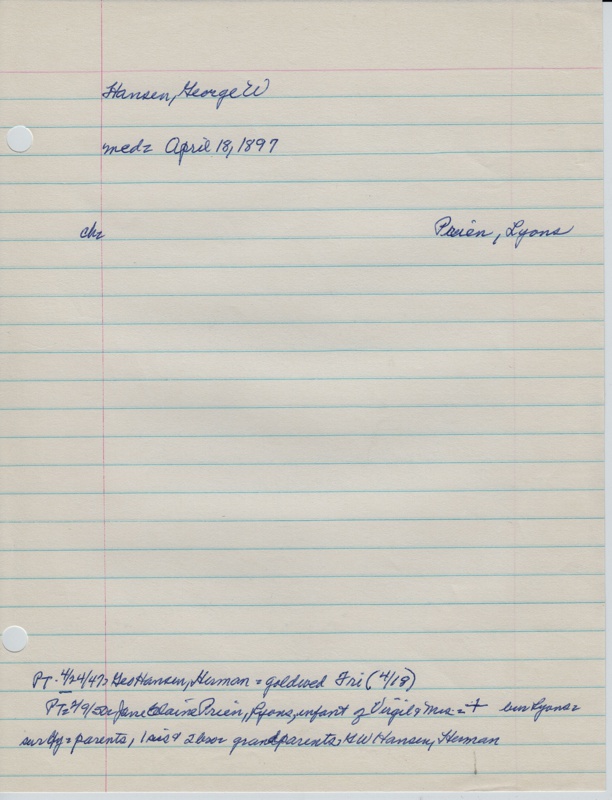 Hansen, George W
med= April 18, 1897
ch= Prien, Lyons
PT- 4/24/47= Geo Hansen, Herman = goldwed Fri (4/18)
PT= 2/9/50= Jane Elaine Prien, Lyons, infant of Virgil & Mrs = + bur Lyons =
surby = parents, 1 sis & 2 bro = grandparents, GW Hansen, Herman